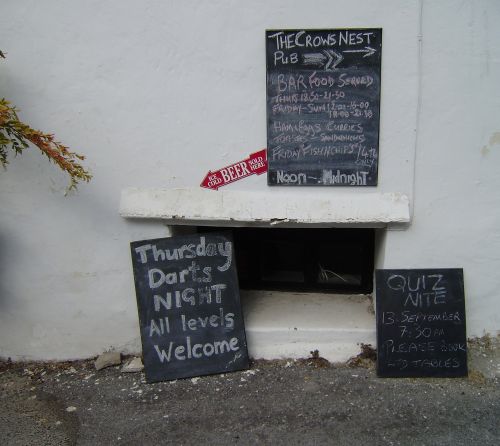 THE CROWS NEST
PUB
BAR FOOD SERVED
THURS 18:30-21:30
FRIDAY-SUN 12:00-15:00
18:00-21:30
CURRIES
SANDWICHES
FRIDAY FISH N CHIPS
ONLY
Noon - Midnight
ICE COLD BEER SOLD HERE
Thursday
Darts
NIGHT
All levels
Welcome
QUIZ
NITE
13 SEPTEMBER
7:30PM
PLEASE BOOK
TABLES